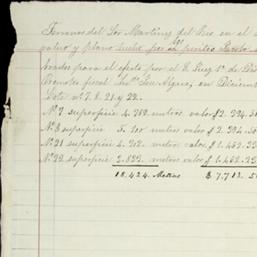 Terrenos del Sor Martinez del Rio en el
valuo y plano hecho por los peritos
tados para el efecto por el S. Juez 1º de
Promotor fiscal Lic. José Algara, en Diciem
Lote nº 7. 8. 21 y 22.
Nº 7 superficie 4.782 metros valor $ 2.394.5
Nº 8 superficie 5.100 metros valor $ 2.394.
Nº 21 superficie 4.712 metros valor $ 1.462.
Nº 22 superficie 3.833 metros valor $ 1.462.
18.424 Metros $ 7.713.5